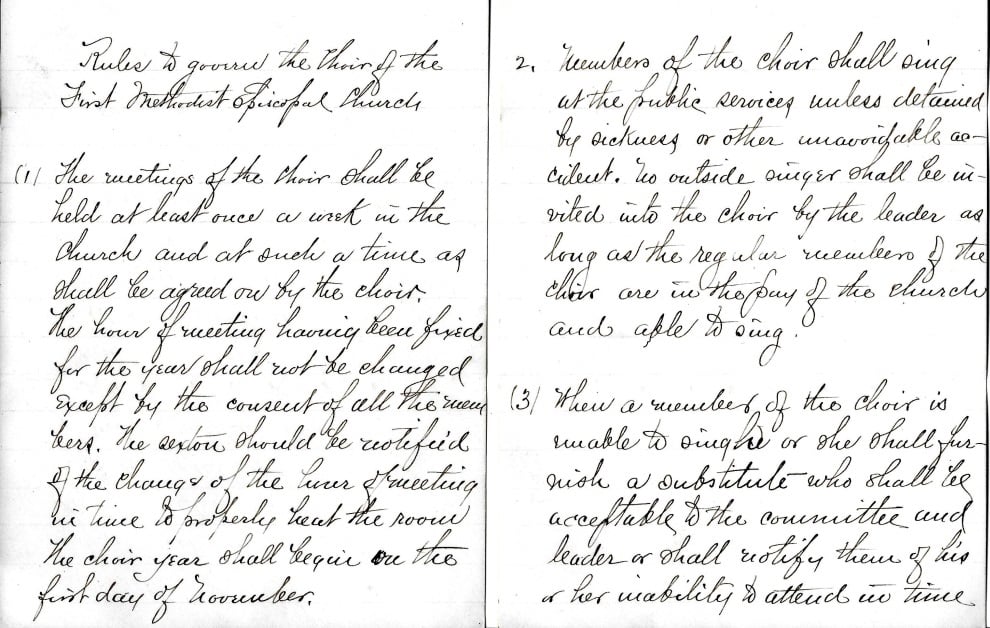 Rules to govern the Choir of the
First Methodist Episcopal Church
(1) The meetings of the choir shall be
held at least once a week in the
church and at such a time as
shall be agreed on by the choir.
The hour of meeting having been fixed
for the year shall not be changed
except by the consent of all the mem
bers. The sexton should be notified
of the change of the hour of meeting
in time to properly heat the room
The choir year shall begin on the
first day of November.
2. Members of the choir shall sing
at the public services unless detained
by sickness or other unavoidable ac-
cident. No outside singer shall be in-
vited into the choir by the leader as
long as the regular members of the
choir are in the pay of the church
and able to sing.
(3) When a member of the choir is
unable to sing he or she shall fur-
nish a substitute who shall be
acceptable to the committee and
leader or shall notify them of his
or her inability to attend in time